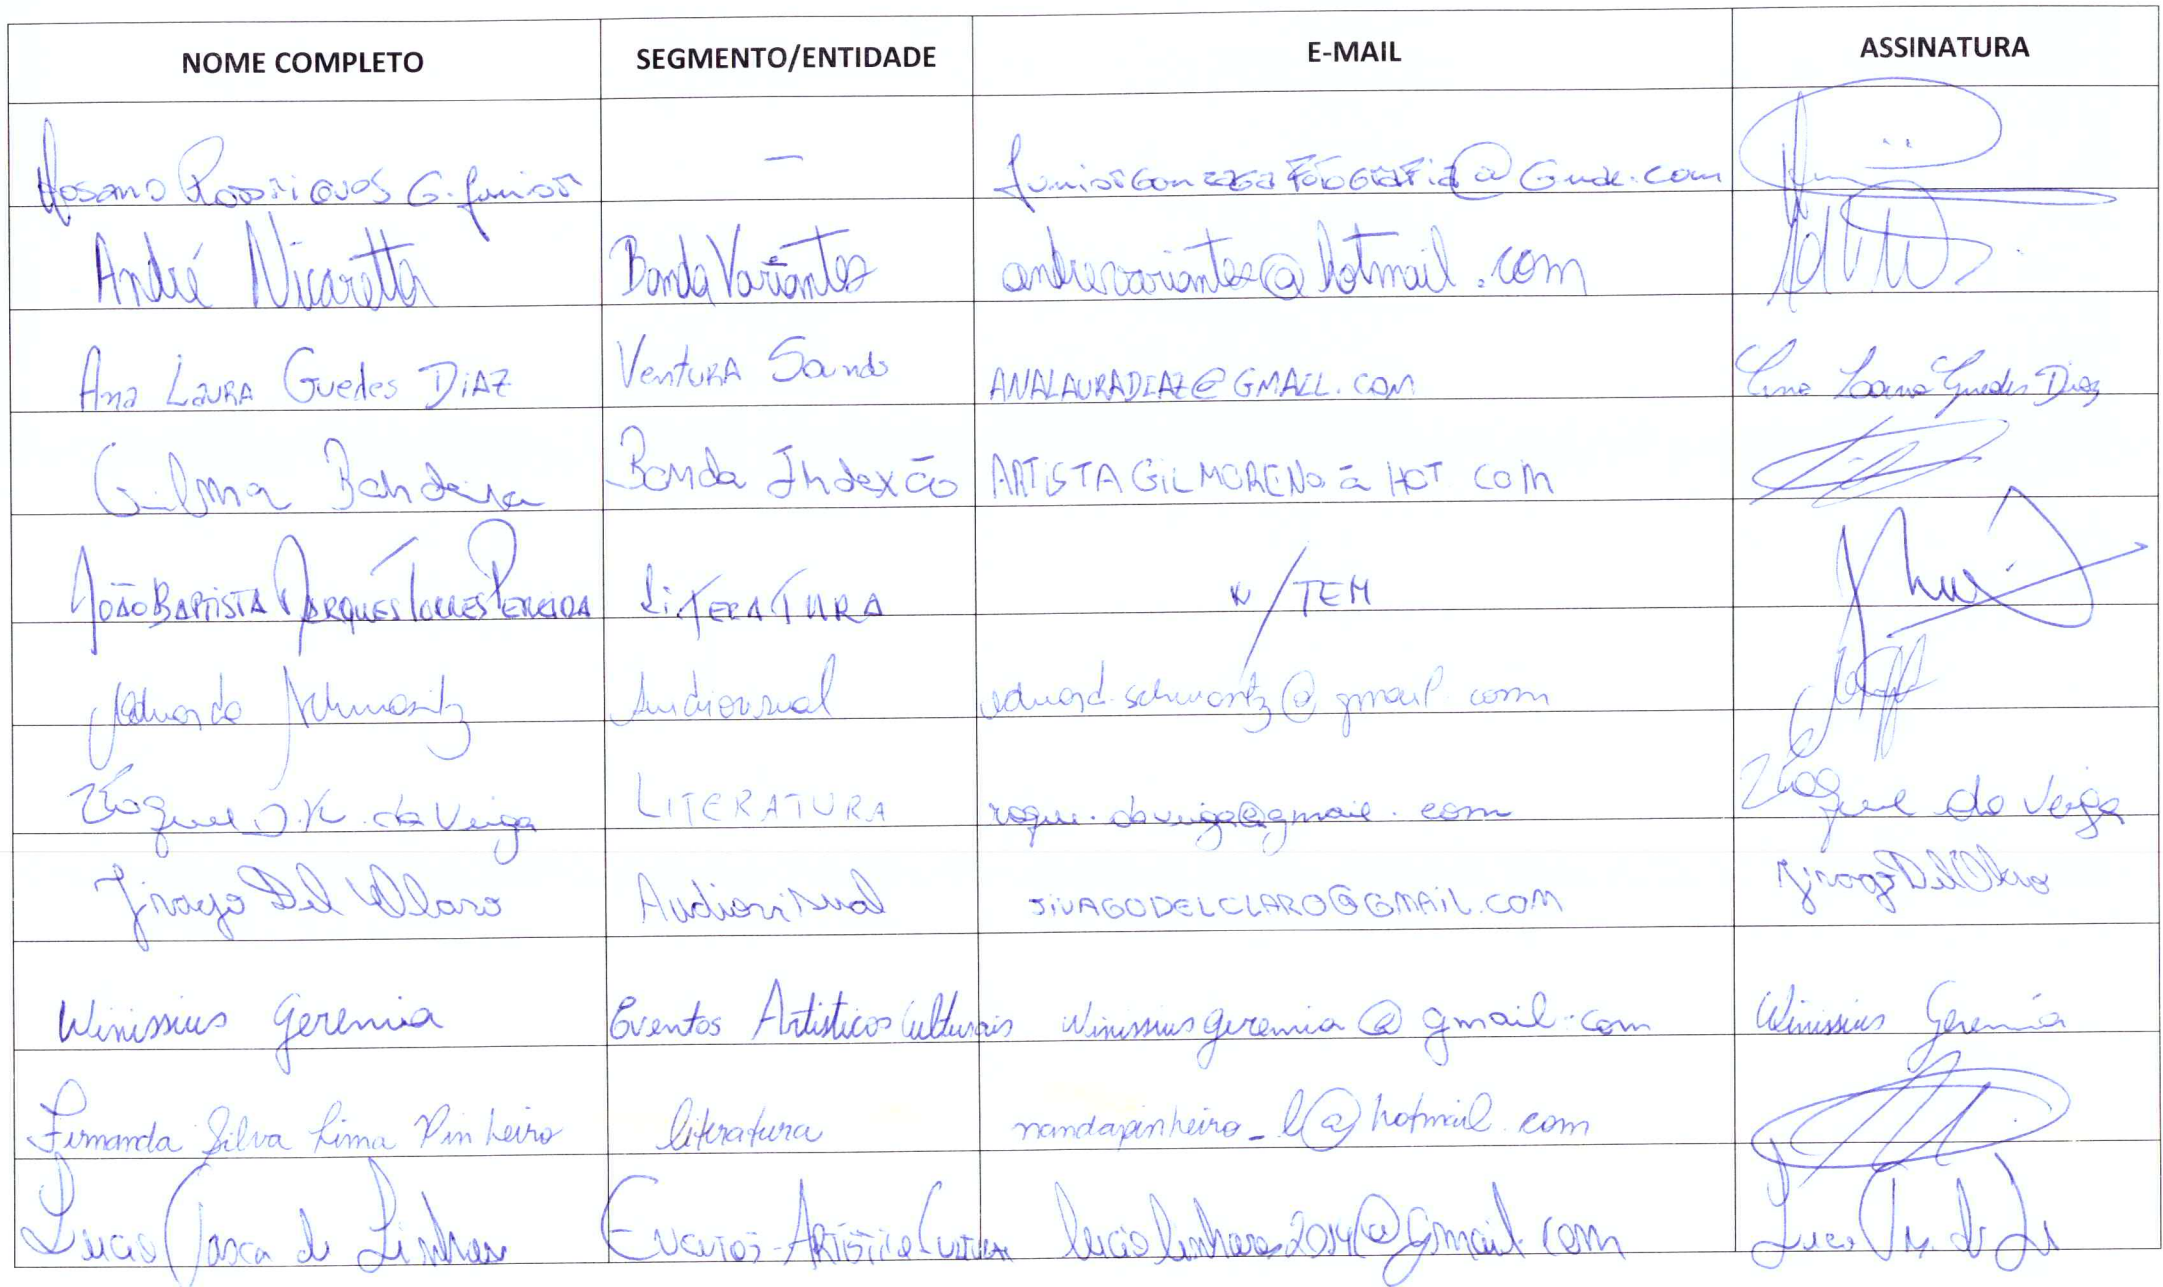 NOME COMPLETO SEGMENTO/ENTIDADE E-MAIL ASSINATURA
Rodrigues G. Junior —
André Nicaretta Banda Variantes andrevariantes@hotmail.com
Ana Laura Guedes DiAZ VentuRA Sounds ANALAURADIAZ@GMAIL.COM Ana Laura Guedes Diaz
Gilmar Bandeira Banda Indexão ARTISTAGILMORENO HOT COM
JOÃO BAPTISTA MARQUES TORRES PEREIRA LiTERATURA N/TEM
Eduardo Schwartz Audiovisual eduard.schwartz@gmail.com
Roque da Veiga LITERATURA roque.daveiga@gmail.com Roque da Veiga
Jivago Del Claro Audiovisual JIVAGODELCLARO@GMAIL.COM Jivago Del Claro
Winissius Geremia Eventos Artísticos Culturais winissiusgeremia@gmail.com Winissius Geremia
Fernanda Silva Lima Pinheiro literatura nandapinheiro_l@hotmail.com
Lucio de Linhares luciolinhares2014@gmail.com